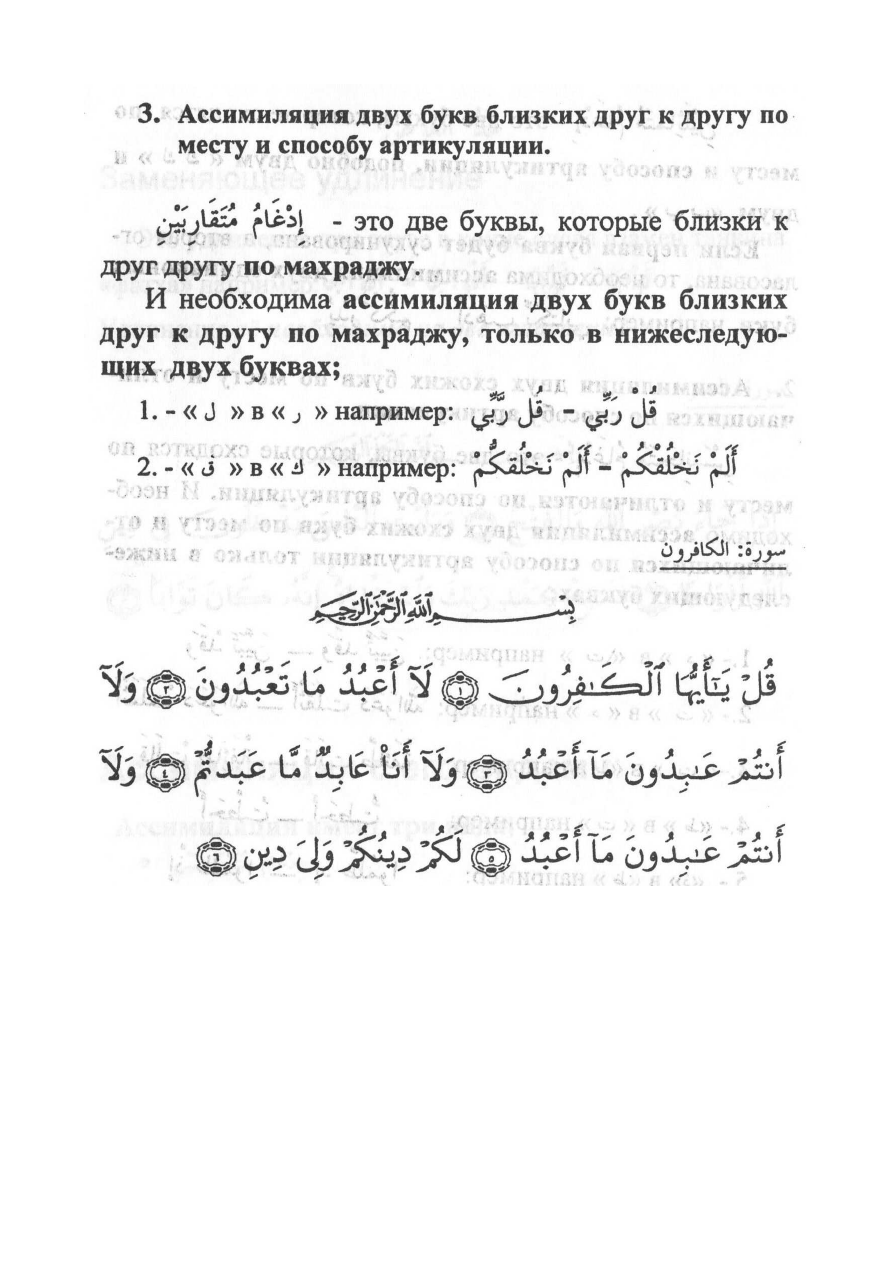 3. Ассимиляция двух букв близких друг к другу по
месту и способу артикуляции.
إِدْغَامُ مُتَقَارِبَيْنِ - это две буквы, которые близки к
друг другу по махраджу.
И необходима ассимиляция двух букв близких
друг к другу по махраджу, только в нижеследую-
щих двух буквах;
1. - « ل » в « ر » например: قُلْ رَبِّي – قُل رَّبِّي
2. - « ق » в « ك » например: أَلَمْ نَخْلُقْكُمْ – أَلَمْ نَخْلُقكُّمْ
سورة: الكافرون
بِسْمِ اللَّهِ الرَّحْمَٰنِ الرَّحِيمِ
قُلْ يَـٰٓأَيُّهَا ٱلْكَـٰفِرُونَ ١ لَآ أَعْبُدُ مَا تَعْبُدُونَ ٢ وَلَآ
أَنتُمْ عَـٰبِدُونَ مَآ أَعْبُدُ ٣ وَلَآ أَنَا۠ عَابِدٌ مَّا عَبَدتُّمْ ٤ وَلَآ
أَنتُمْ عَـٰبِدُونَ مَآ أَعْبُدُ ٥ لَكُمْ دِينُكُمْ وَلِىَ دِينِ ٦